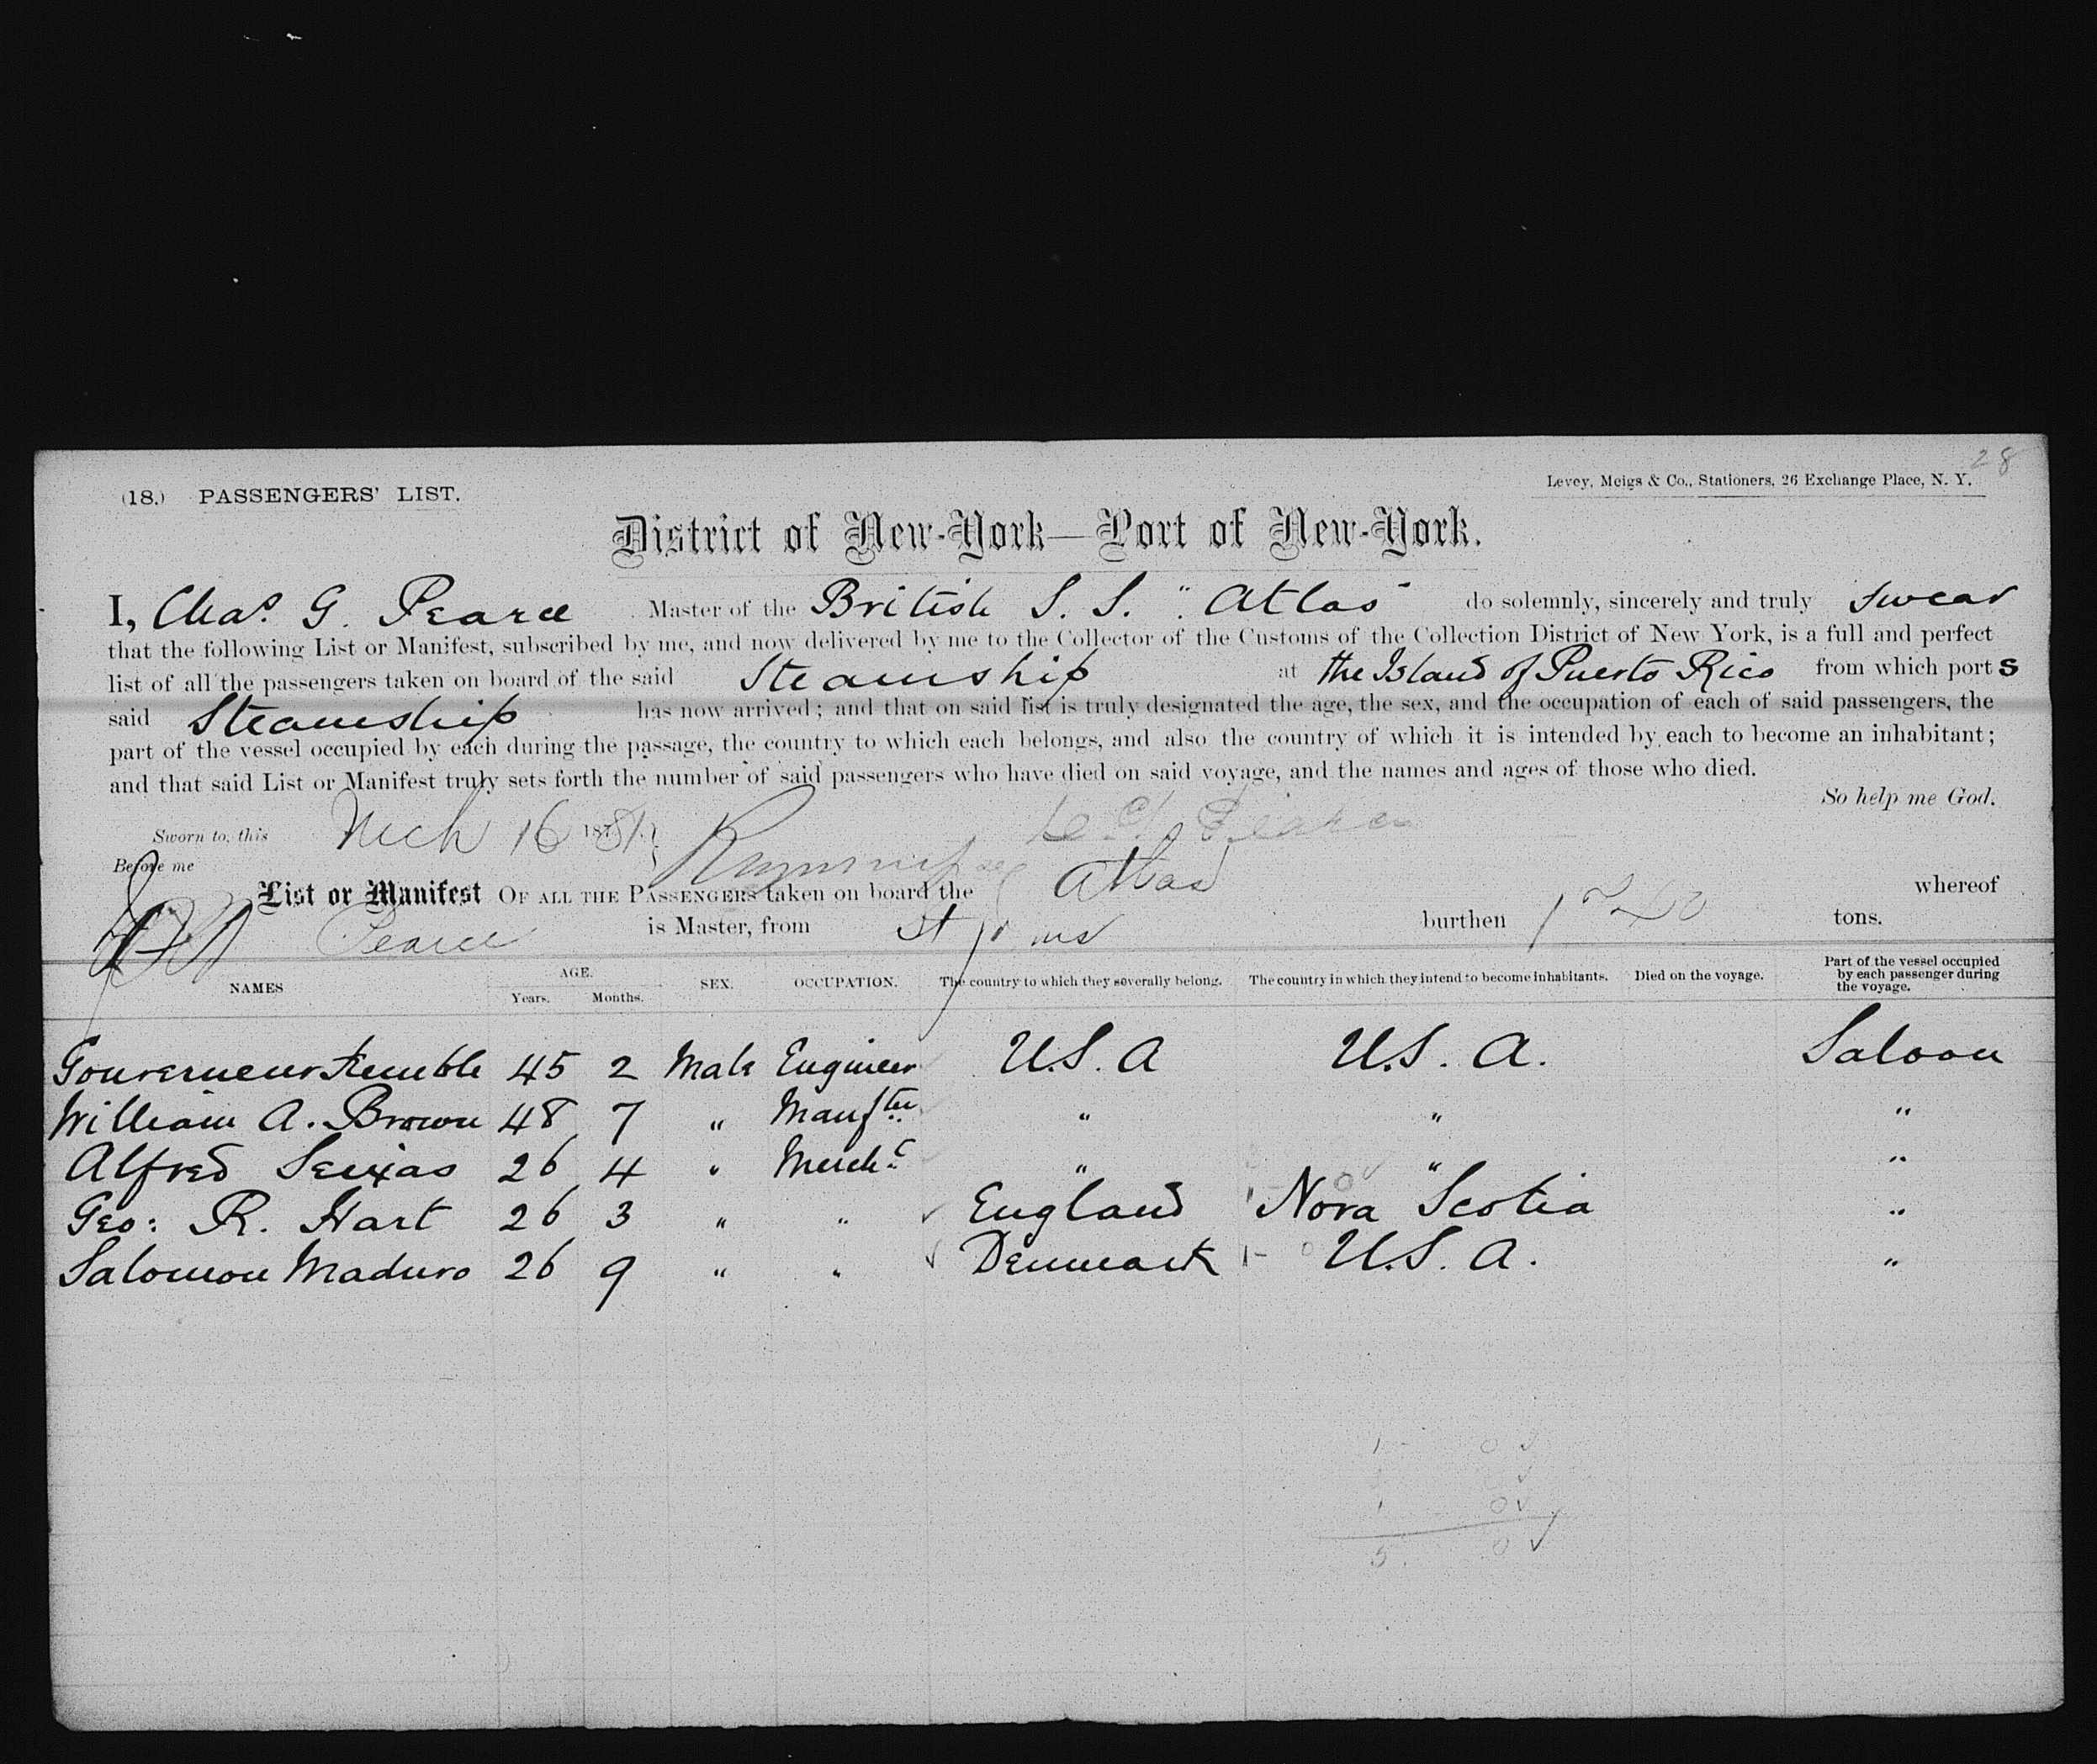 28
(18.) PASSENGERS' LIST.
Levey, Meigs & Co., Stationers, 26 Exchange Place, N. Y.
District of New-York—Port of New-York.
I, Chas. G. Pearce Master of the British S. S. "Atlas" do solemnly, sincerely and truly swear
that the following List or Manifest, subscribed by me, and now delivered by me to the Collector of the Customs of the Collection District of New York, is a full and perfect
list of all the passengers taken on board of the said Steamship at the Island of Puerto Rico from which ports
said Steamship has now arrived; and that on said list is truly designated the age, the sex, and the occupation of each of said passengers, the
part of the vessel occupied by each during the passage, the country to which each belongs, and also the country of which it is intended by each to become an inhabitant;
and that said List or Manifest truly sets forth the number of said passengers who have died on said voyage, and the names and ages of those who died.
So help me God.
Sworn to, this Mch 16 1881 Pearce
Before me
List or Manifest OF ALL THE PASSENGERS taken on board the Atlas whereof
Pearce is Master, from burthen tons.
NAMES AGE. Years. Months. SEX. OCCUPATION. The country to which they severally belong. The country in which they intend to become inhabitants. Died on the voyage. Part of the vessel occupied by each passenger during the voyage.
Gouverneur Kemble 45 2 Male Engineer U.S.A U.S.A. Saloon
William A. Brown 48 7 " Manftu " " "
Alfred Seixas 26 4 " Merch.t " " "
Geo: R. Hart 26 3 " " England Nova Scotia "
Salomon Maduro 26 9 " " Denmark U.S.A. "
1 0
1 0
5 0